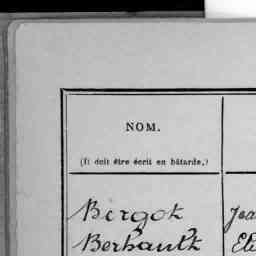 NOM.
(Il doit être écrit en bâtarde.)
Bergot
Berhault